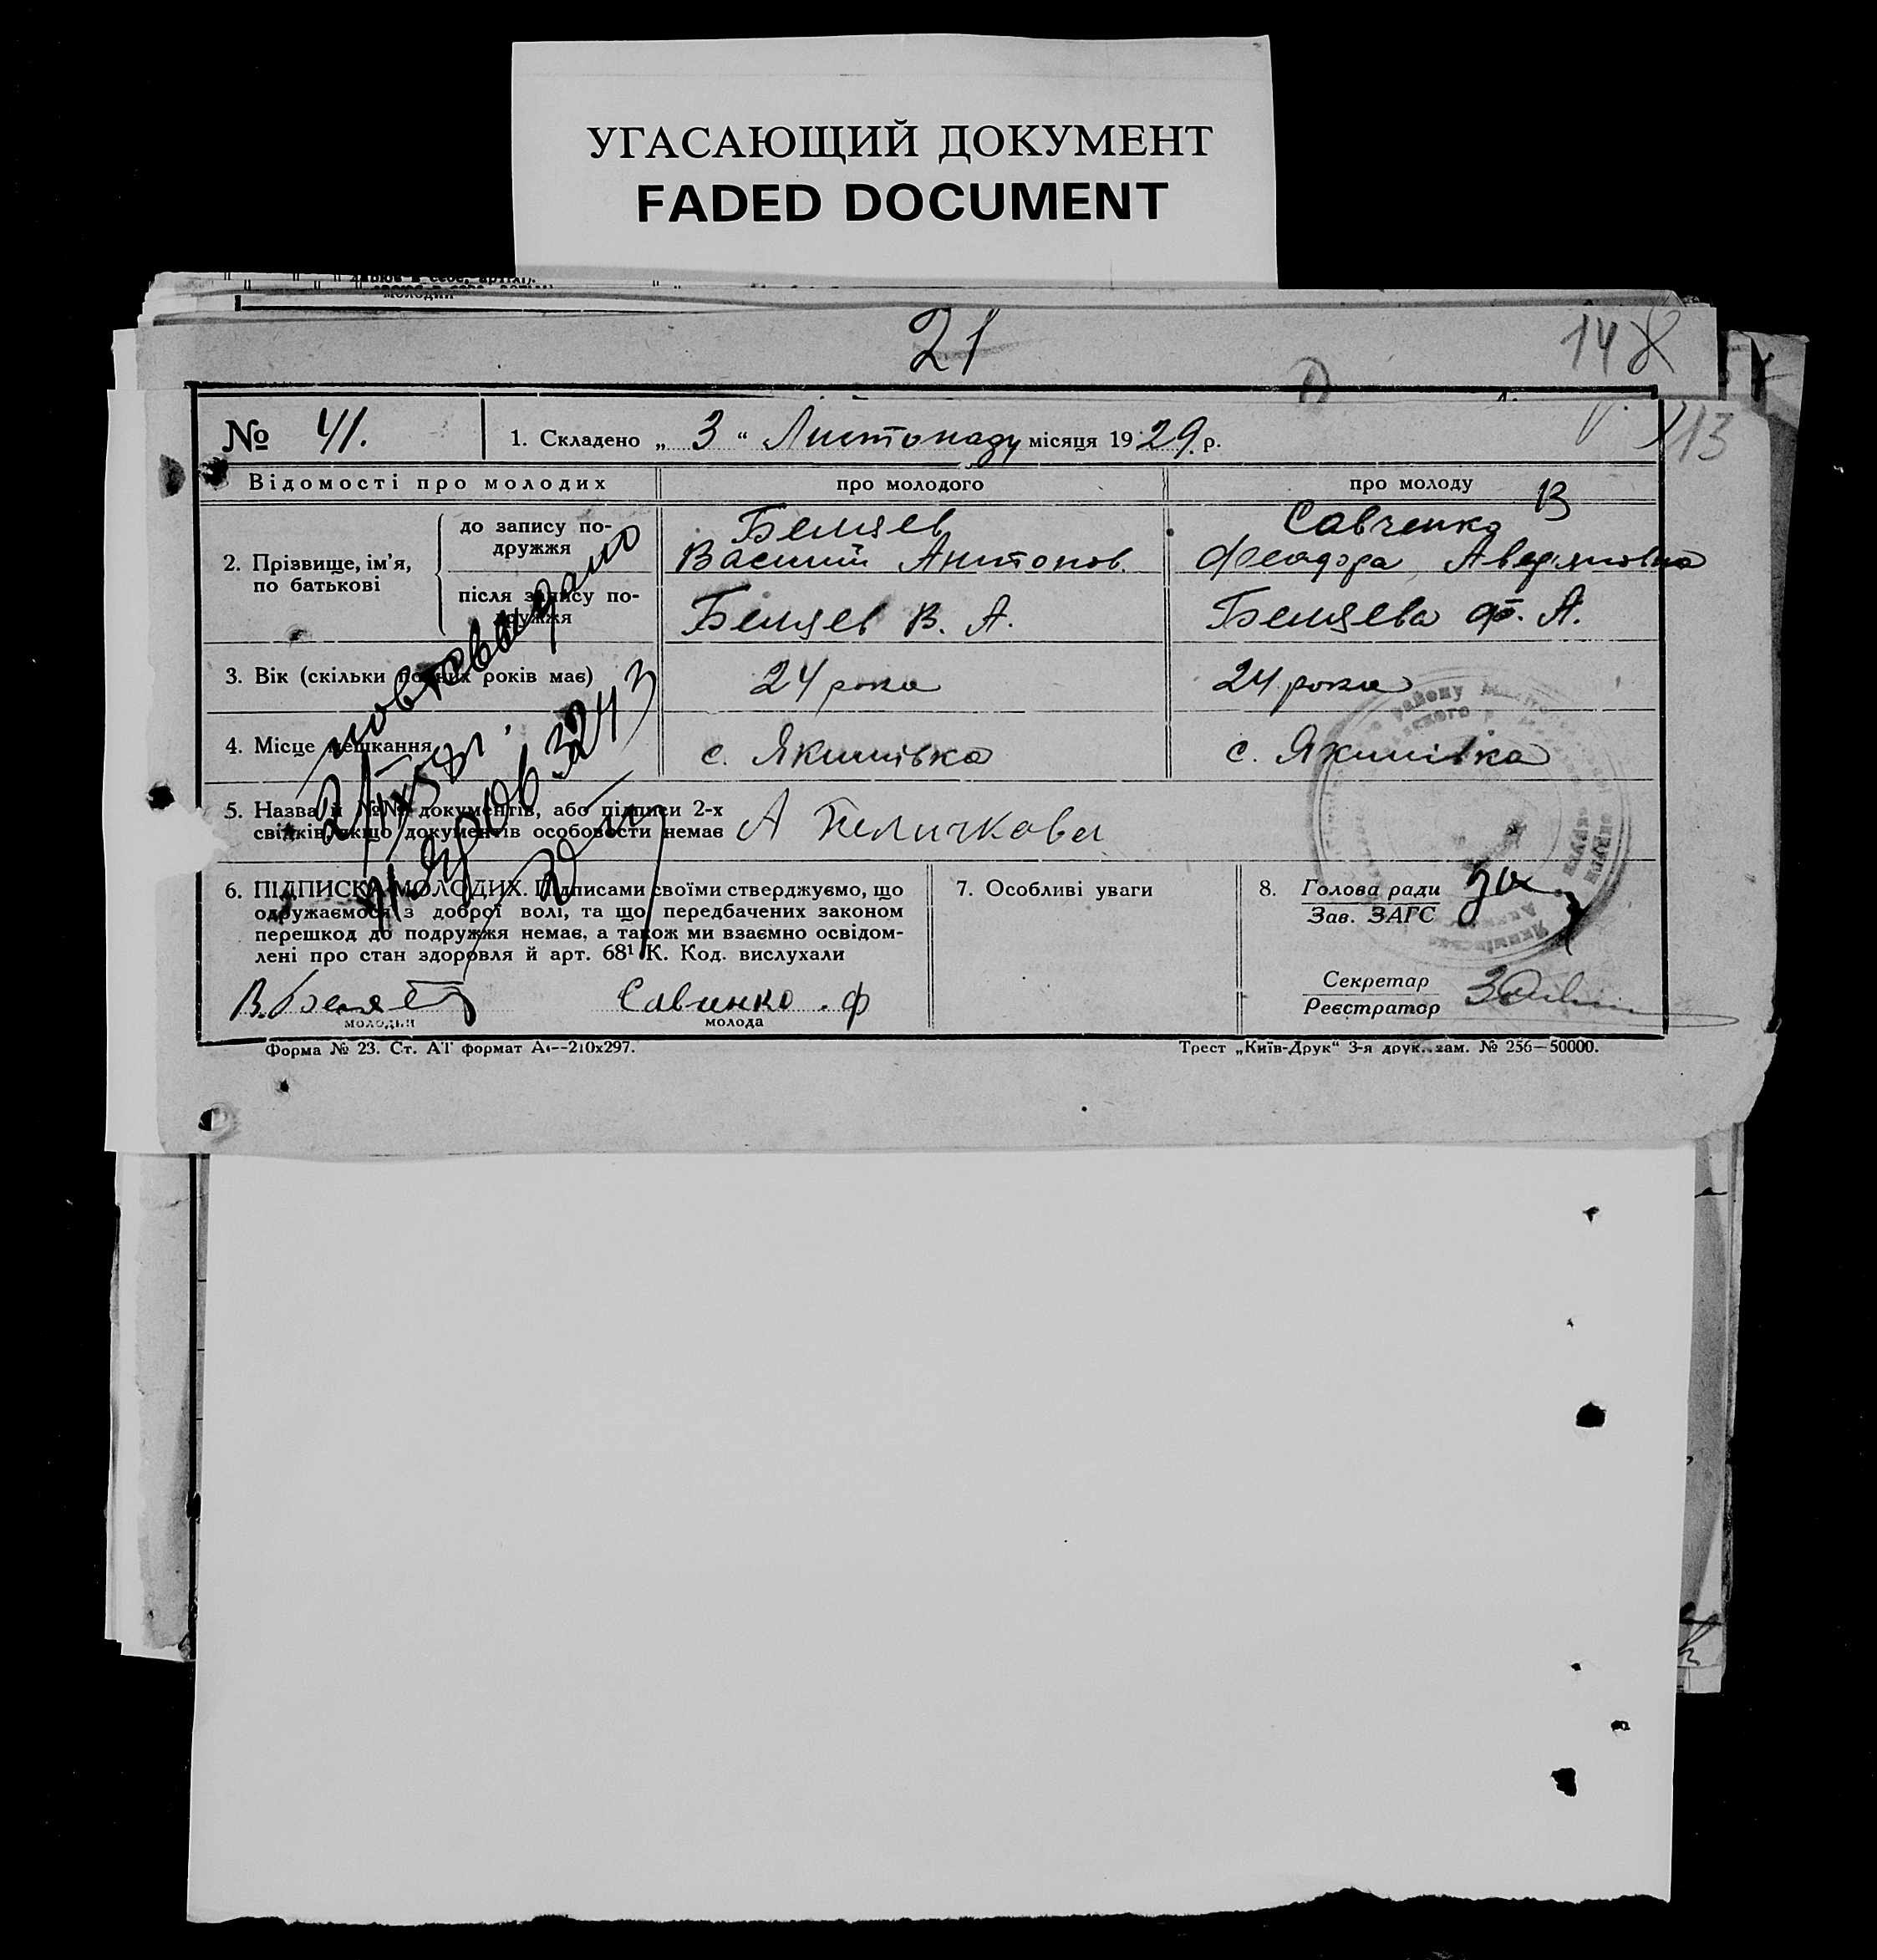 УГАСАЮЩИЙ ДОКУМЕНТ
FADED DOCUMENT
21
148
113
№ 41.
1. Складено „ 3 “ Листопаду місяця 1929 р.
Відомості про молодих
про молодого
про молоду
13
2. Прізвище, ім'я, по батькові
до запису подружжя
Беляев
Василий Антонов.
Савченко
Феодора Аведяновна
після запису подружжя
Беляев В. А.
Беляева Ф. А.
3. Вік (скільки повних років має)
24 рока
24 рока
4. Місце мешкання
с. Якимівка
с. Якимівка
5. Назва й №№ документів, або підписи 2-х
свідків, якщо документів особовости немає
А
6. ПІДПИСКА МОЛОДИХ. Підписами своїми стверджуємо, що
одружаємося з доброї волі, та що передбачених законом
перешкод до подружжя немає, а також ми взаємно освідом-
лені про стан здоровля й арт. 68¹ К. Код. вислухали
В. Беляев
молодий
Савченко . Ф
молода
7. Особливі уваги
8. Голова ради
Зав. ЗАГС
Секретар
Реєстратор
повт. выдано
Форма № 23. Ст. АТ формат А4--210х297.
Трест „Київ-Друк“ 3-я друк. зам. № 256—50000.